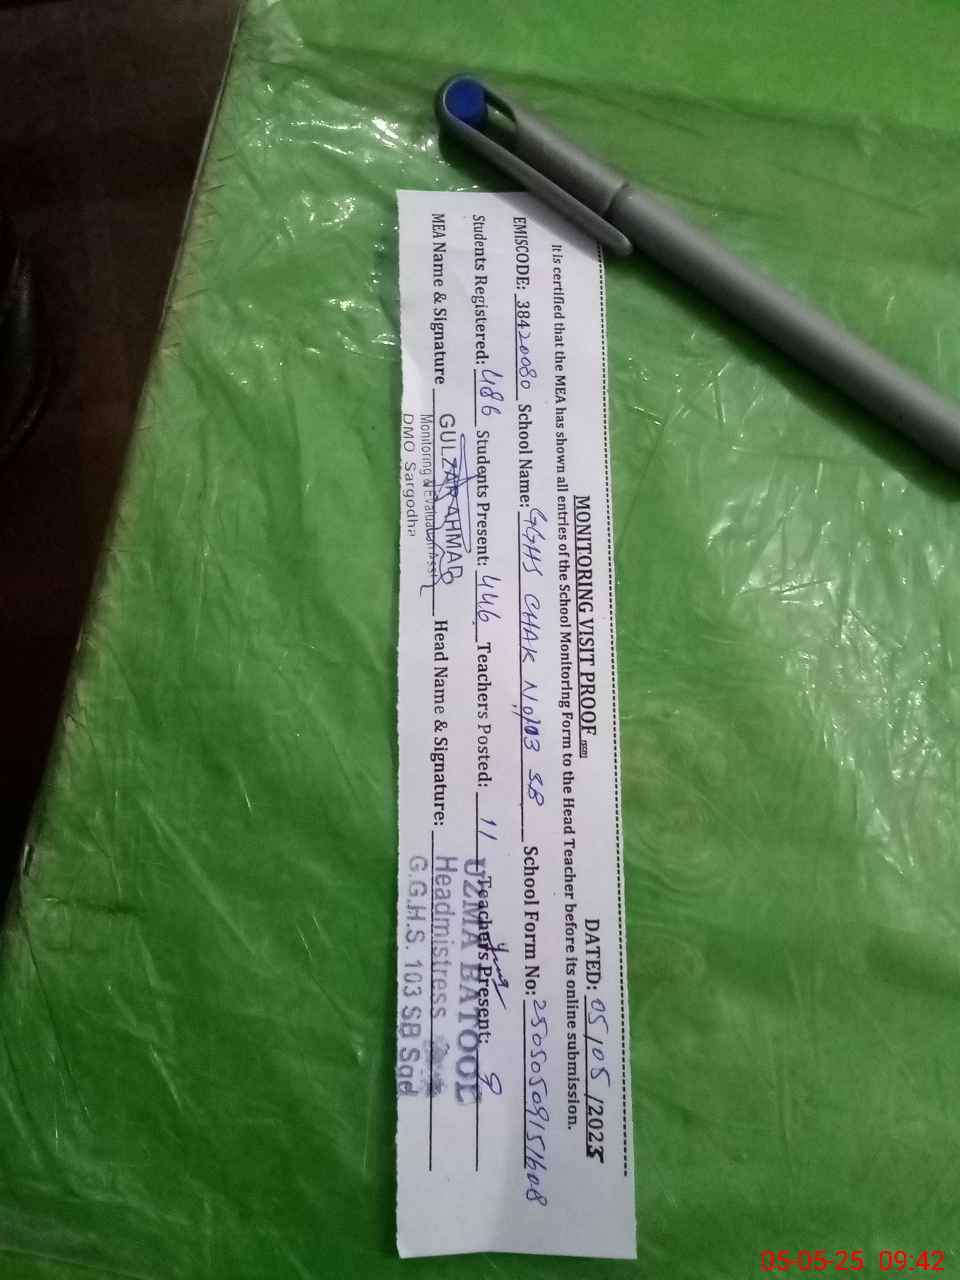 MONITORING VISIT PROOF DATED: 05/05/2025
It is certified that the MEA has shown all entries of the School Monitoring Form to the Head Teacher before its online submission.
EMISCODE: 38420080 School Name: GGHS CHAK No,103 SB School Form No: 25050509151608
Students Registered: 486 Students Present: 446 Teachers Posted: 11 Teachers Present: 9
MEA Name & Signature GULZAR AHMAD Head Name & Signature: UZMA BATOOL
Monitoring & Evaluation Asst Headmistress
DMO Sargodha G.G.H.S. 103 SB Sgd
05-05-25 09:42